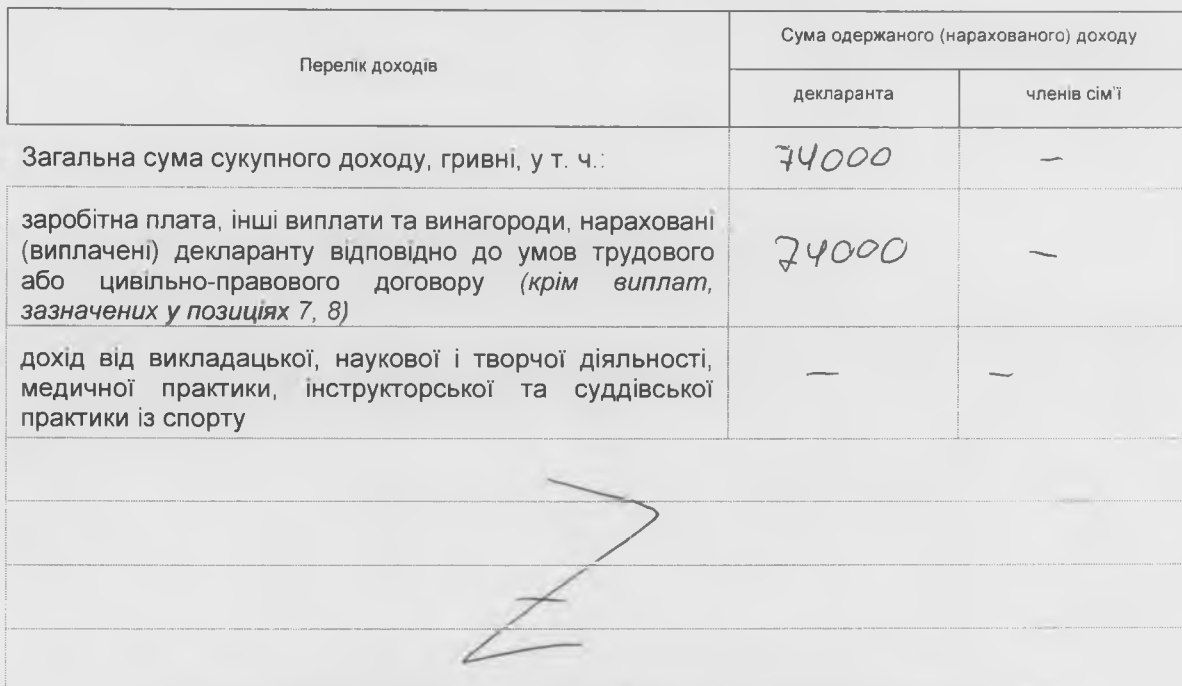 Перелік доходів
Сума одержаного (нарахованого) доходу
декларанта
членів сім'ї
Загальна сума сукупного доходу, гривні, у т. ч.:
74000
—
заробітна плата, інші виплати та винагороди, нараховані
(виплачені) декларанту відповідно до умов трудового
або цивільно-правового договору (крім виплат,
зазначених у позиціях 7, 8)
74000
—
дохід від викладацької, наукової і творчої діяльності,
медичної практики, інструкторської та суддівської
практики із спорту
—
—